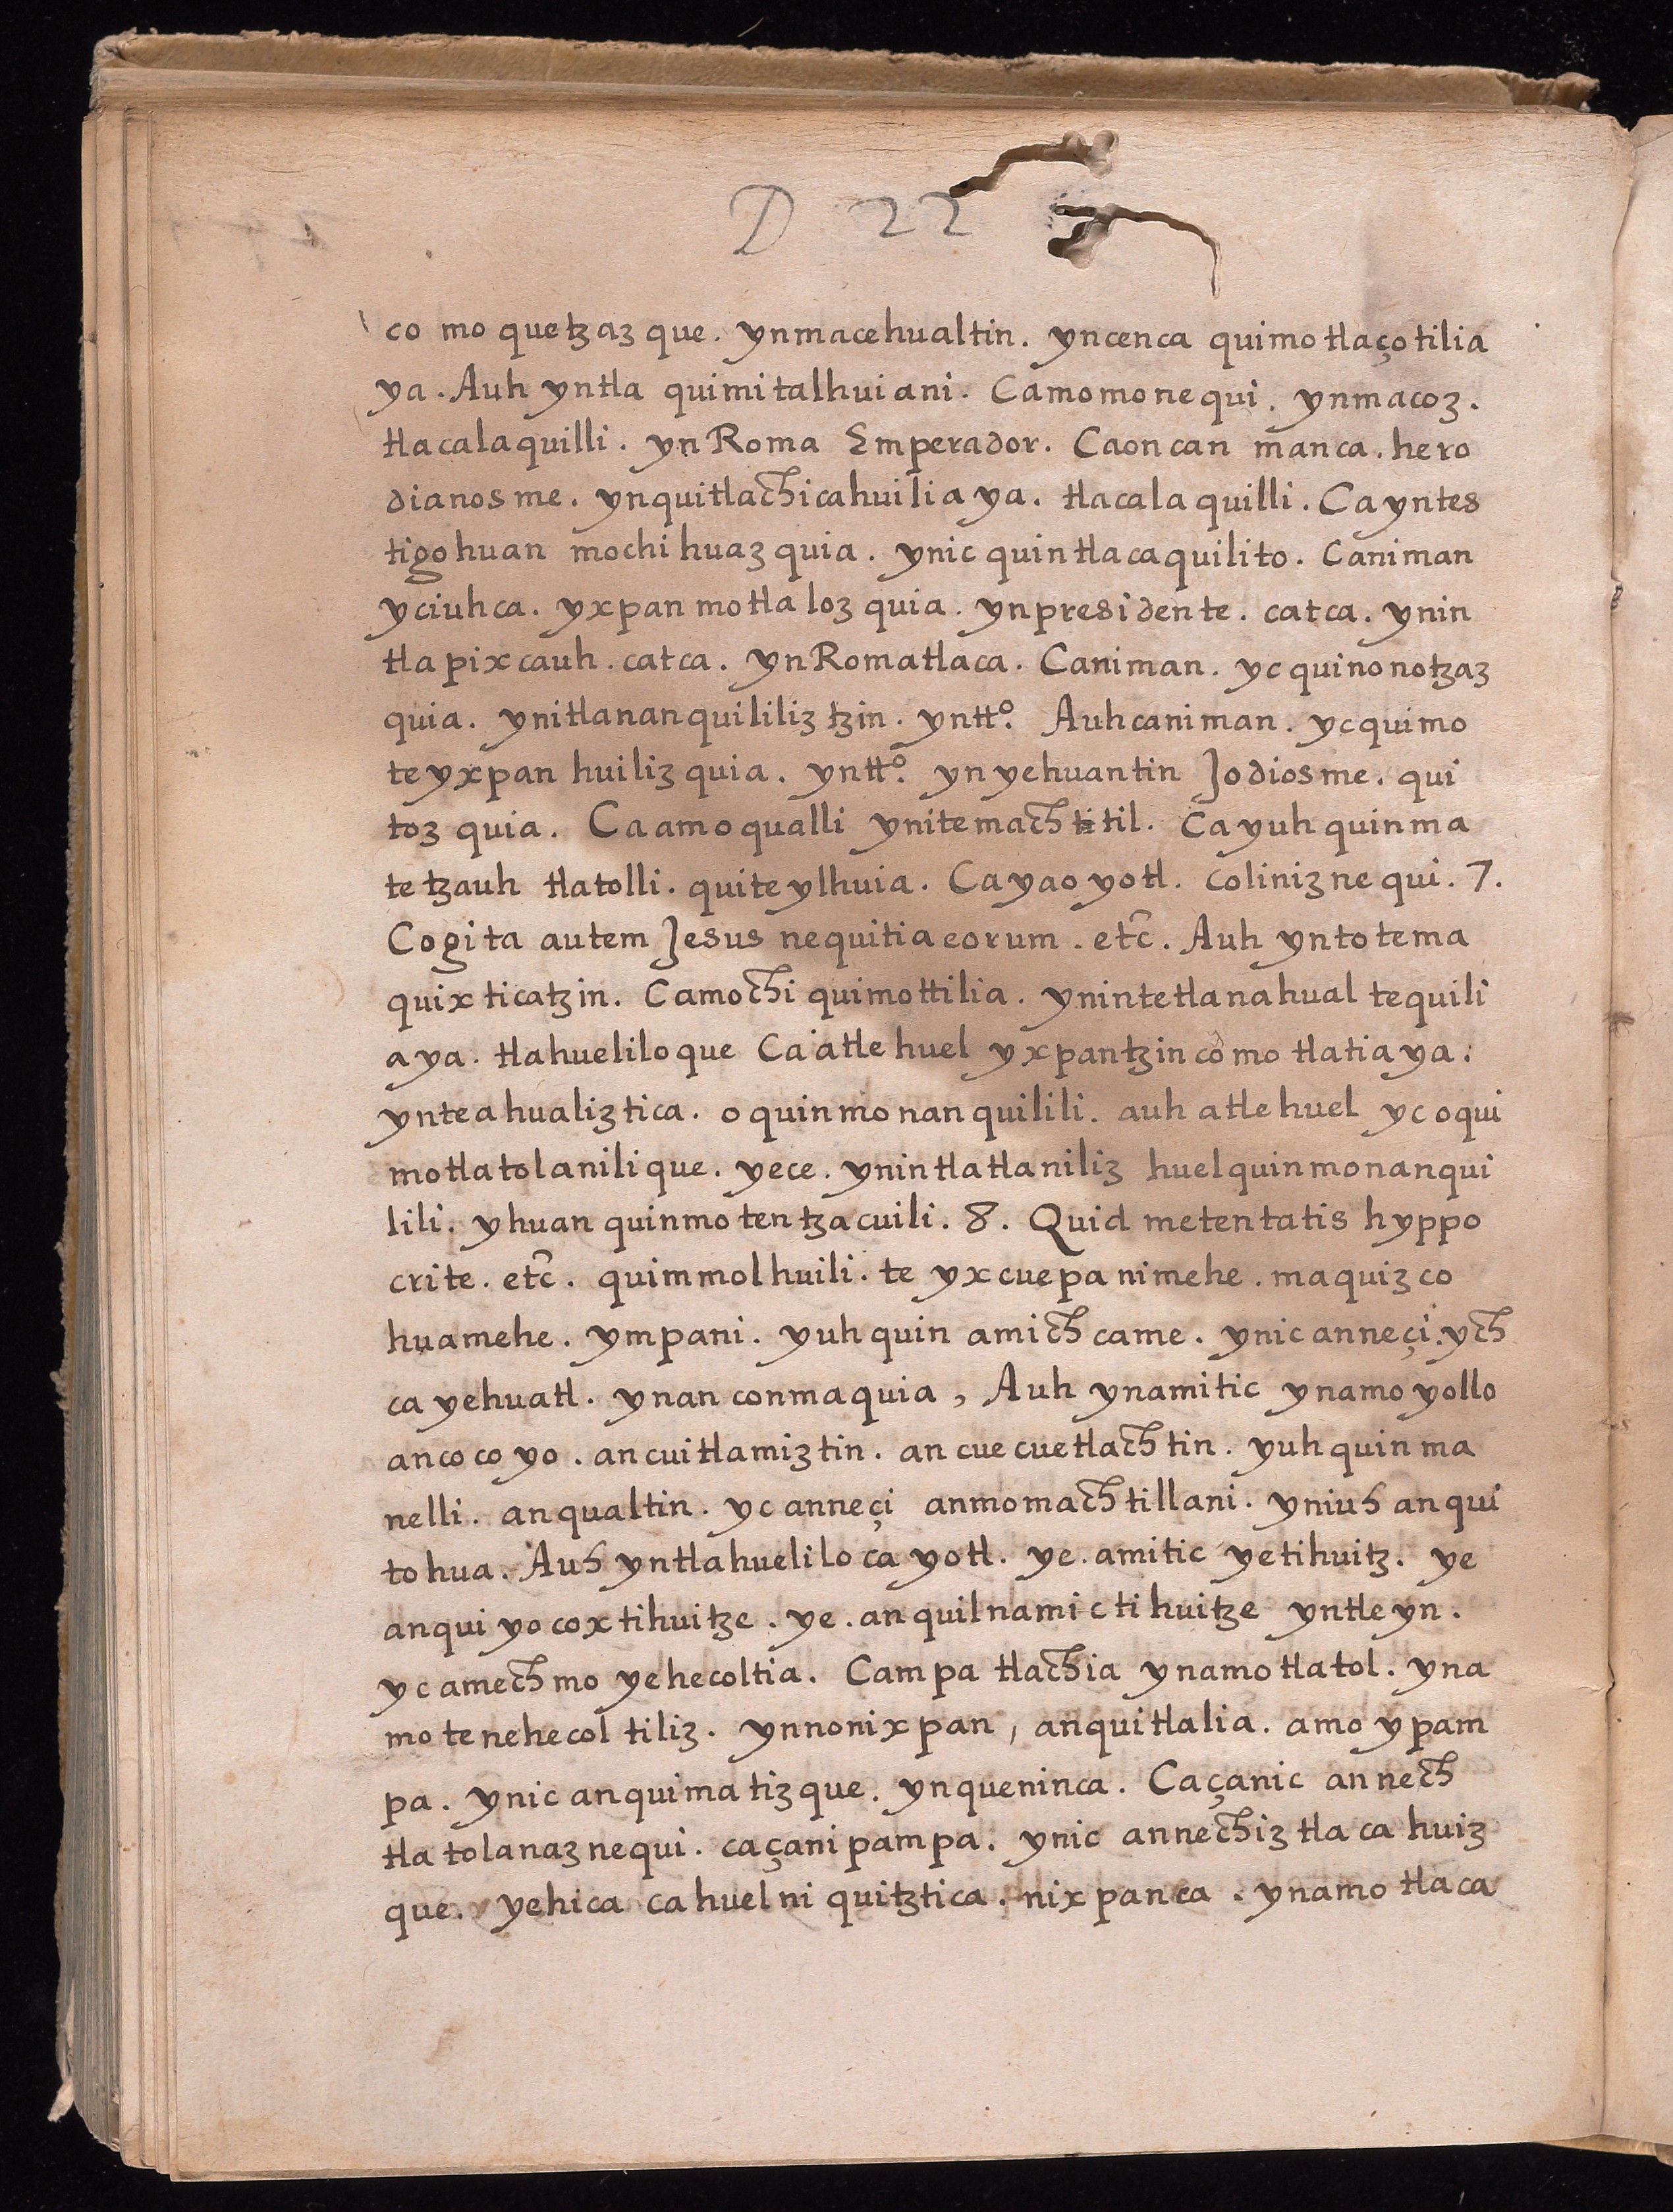 D 22
co mo quetzaz que. ynmacehualtin. yncenca quimo tlaçotilia
ya. Auh yntla quimitalhuiani. Camomonequi. ynmacoz.
tlacalaquilli. yn Roma Emperador. Caoncan manca. hero
dianosme. ynquitlachicahuiliaya. tlacalaquilli. Ca yntes
tigohuan mochihuaz quia. ynic quintlacaquilito. Caniman
yciuhca. yxpan motlaloz quia. ynpresidente. catca. ynin
tlapixcauh. catca. yn Romatlaca. Caniman. yc quinonotzaz
quia. ynitlananquililiz tzin. yntt.º Auhcaniman. ycquimo
teyxpan huiliz quia. yntt.º yn yehuantin Jodiosme. qui
toz quia. Caamoqualli ynitemach til. Ca yuh quinma
tetzauh tlatolli. quiteylhuia. Cayaoyotl. coliniznequi. 7.
Cogita autem Jesus nequitiaeorum. etc̃. Auh yntotema
quixticatzin. Camochi quimottilia. ynintetlanahual tequili
aya. tlahueliloque Ca atle huel yxpantzinco mo tlatiaya.
ynteahualiztica. oquinmonanquilili. auh atle huel yc oqui
motlatolanilique. yece. ynintlatlaniliz huelquinmonanqui
lili. yhuan quinmotentzacuili. 8. Quid metentatis hyppo
crite. etc̃. quimmolhuili. te yxcuepanimehe. maquizco
huamehe. ympani. yuhquin amichcame. ynic anneçi. ych
ca yehuatl. ynan conmaquia, Auh ynamitic ynamoyollo
ancocoyo. ancuitlamiztin. an cuecuetlachtin. yuhquin ma
nelli. anqualtin. yc anneçi anmomachtillani. yniuh anqui
tohua. Auh yntlahuelilocayotl. ye. amitic yetihuitz. ye
anquiyocoxtihuitze. ye. anquilnamictihuitze yntleyn.
yc amechmo yehecoltia. Campa tlachia ynamotlatol. yna
mo tenehecoltiliz. ynnonixpan, anquitlalia. amo ypam
pa. ynic anquimatizque. ynqueninca. Caçanic annech
tlatolanaznequi. caçanipampa. ynic annechiztlacahuiz
que. yehica cahuelni quitztica. nixpanca. ynamo tlaca